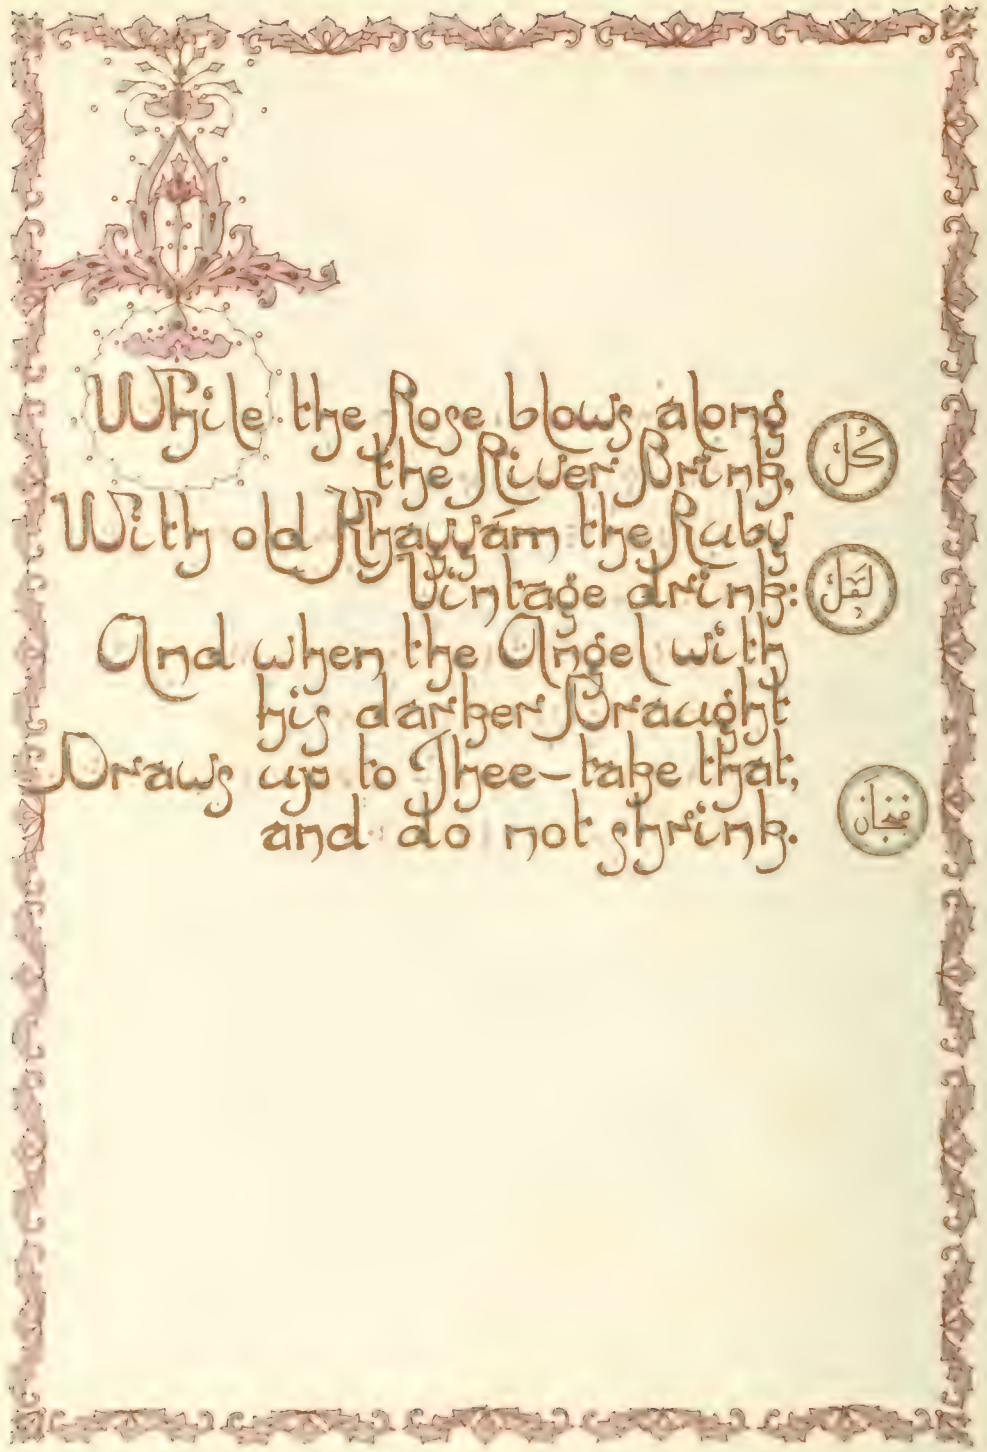 While the Rose blows along
the River Brink,
With old Khayyám the Ruby
Vintage drink:
And when the Angel with
his darker Draught
Draws up to Thee—take that,
and do not shrink.
گل
لعل